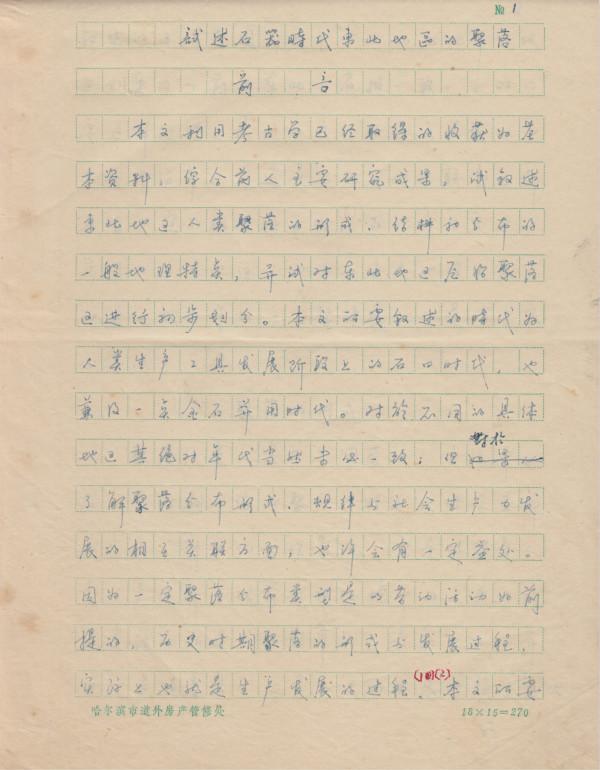 № 1
試述石器時代東北地区的聚落
前言
本文利用考古学已经取得的收获为基
本资料，综合前人主要研究成果，试叙述
東北地区人类聚落的形成、结构和分布的
一般地理特点，并试对东北地区原始聚落
区进行初步划分。本文所要叙述的时代为
人类生产工具发展阶段上的石口时代，也
兼及一点金石并用时代。对於不同的具体
地区其绝对年代当然未必一致；但對於
了解聚落分布形式、规律与社会生产力发
展的相互关联方面，也许会有一定益处。
因为一定聚落分布类型是以劳动活动为前
提的，石口时期聚落的形成与发展过程，
实际上也就是生产发展的过程(1)(2)。本文所要
哈尔滨市道外房产管修处
18×15=270